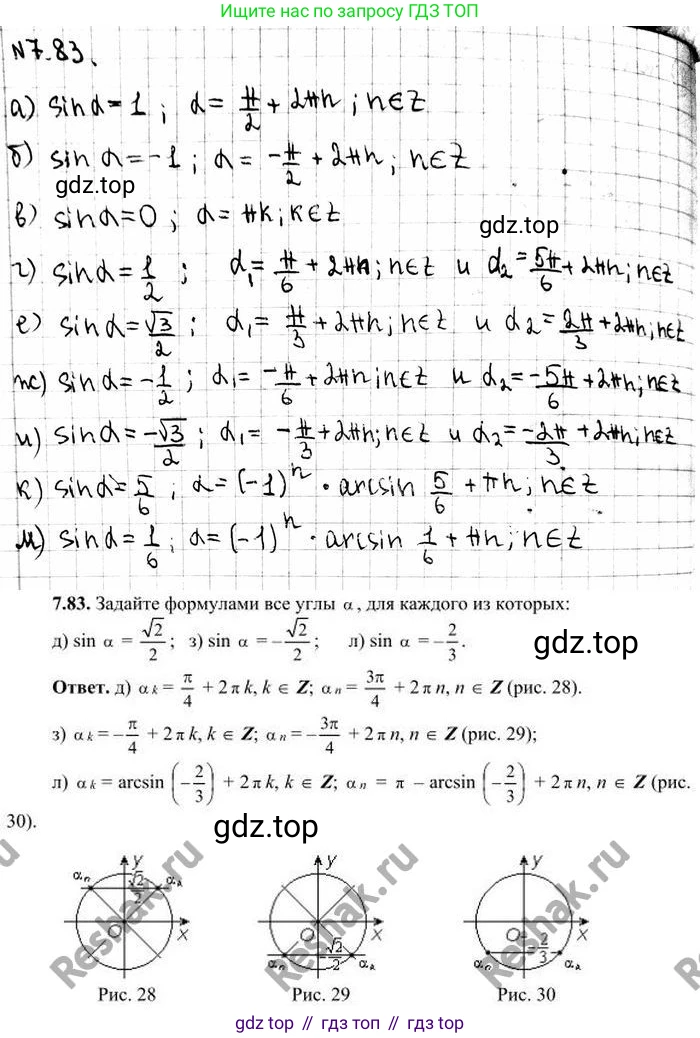 Ищите правильные ответы на ГДЗ ТОП
N 7.83.
а) sinα = 1 ; α = π/2 + 2πn ; n∈Z
б) sin α = -1 ; α = -π/2 + 2πn ; n∈Z
gdz.top
в) sinα = 0 ; α = πk ; k∈Z
gdz.top
г) sinα = 1/2 ; α₁ = π/6 + 2πn ; n∈Z и α₂ = 5π/6 + 2πn ; n∈Z
е) sinα = √3/2 ; α₁ = π/3 + 2πn ; n∈Z и α₂ = 2π/3 + 2πn ; n∈Z
ж) sinα = -1/2 ; α₁ = -π/6 + 2πn ; n∈Z и α₂ = -5π/6 + 2πn ; n∈Z
и) sinα = -√3/2 ; α₁ = -π/3 + 2πn ; n∈Z и α₂ = -2π/3 + 2πn ; n∈Z
к) sinα = 5/6 ; α = (-1)ⁿ · arcsin 5/6 + πn ; n∈Z
м) sinα = 1/6 ; α = (-1)ⁿ · arcsin 1/6 + πn ; n∈Z
7.83. Задайте формулами все углы α , для каждого из которых:
д) sin α = √2/2 ; з) sin α = –√2/2 ; л) sin α = –2/3 .
Ответ. д) αk = π/4 + 2πk, k ∈ Z; αn = 3π/4 + 2πn, n ∈ Z (рис. 28).
з) αk = –π/4 + 2πk, k ∈ Z; αn = –3π/4 + 2πn, n ∈ Z (рис. 29);
л) αk = arcsin (–2/3) + 2πk, k ∈ Z; αn = π – arcsin (–2/3) + 2πn, n ∈ Z (рис.
30).
gdz.top gdz.top
Reshak.ru Reshak.ru Reshak.ru
αn √2/2 αk y O x
y O x αn –√2/2 αk
y O x αn –2/3 αk
Рис. 28 Рис. 29 Рис. 30
gdz.top // гдз.топ // gdz.top